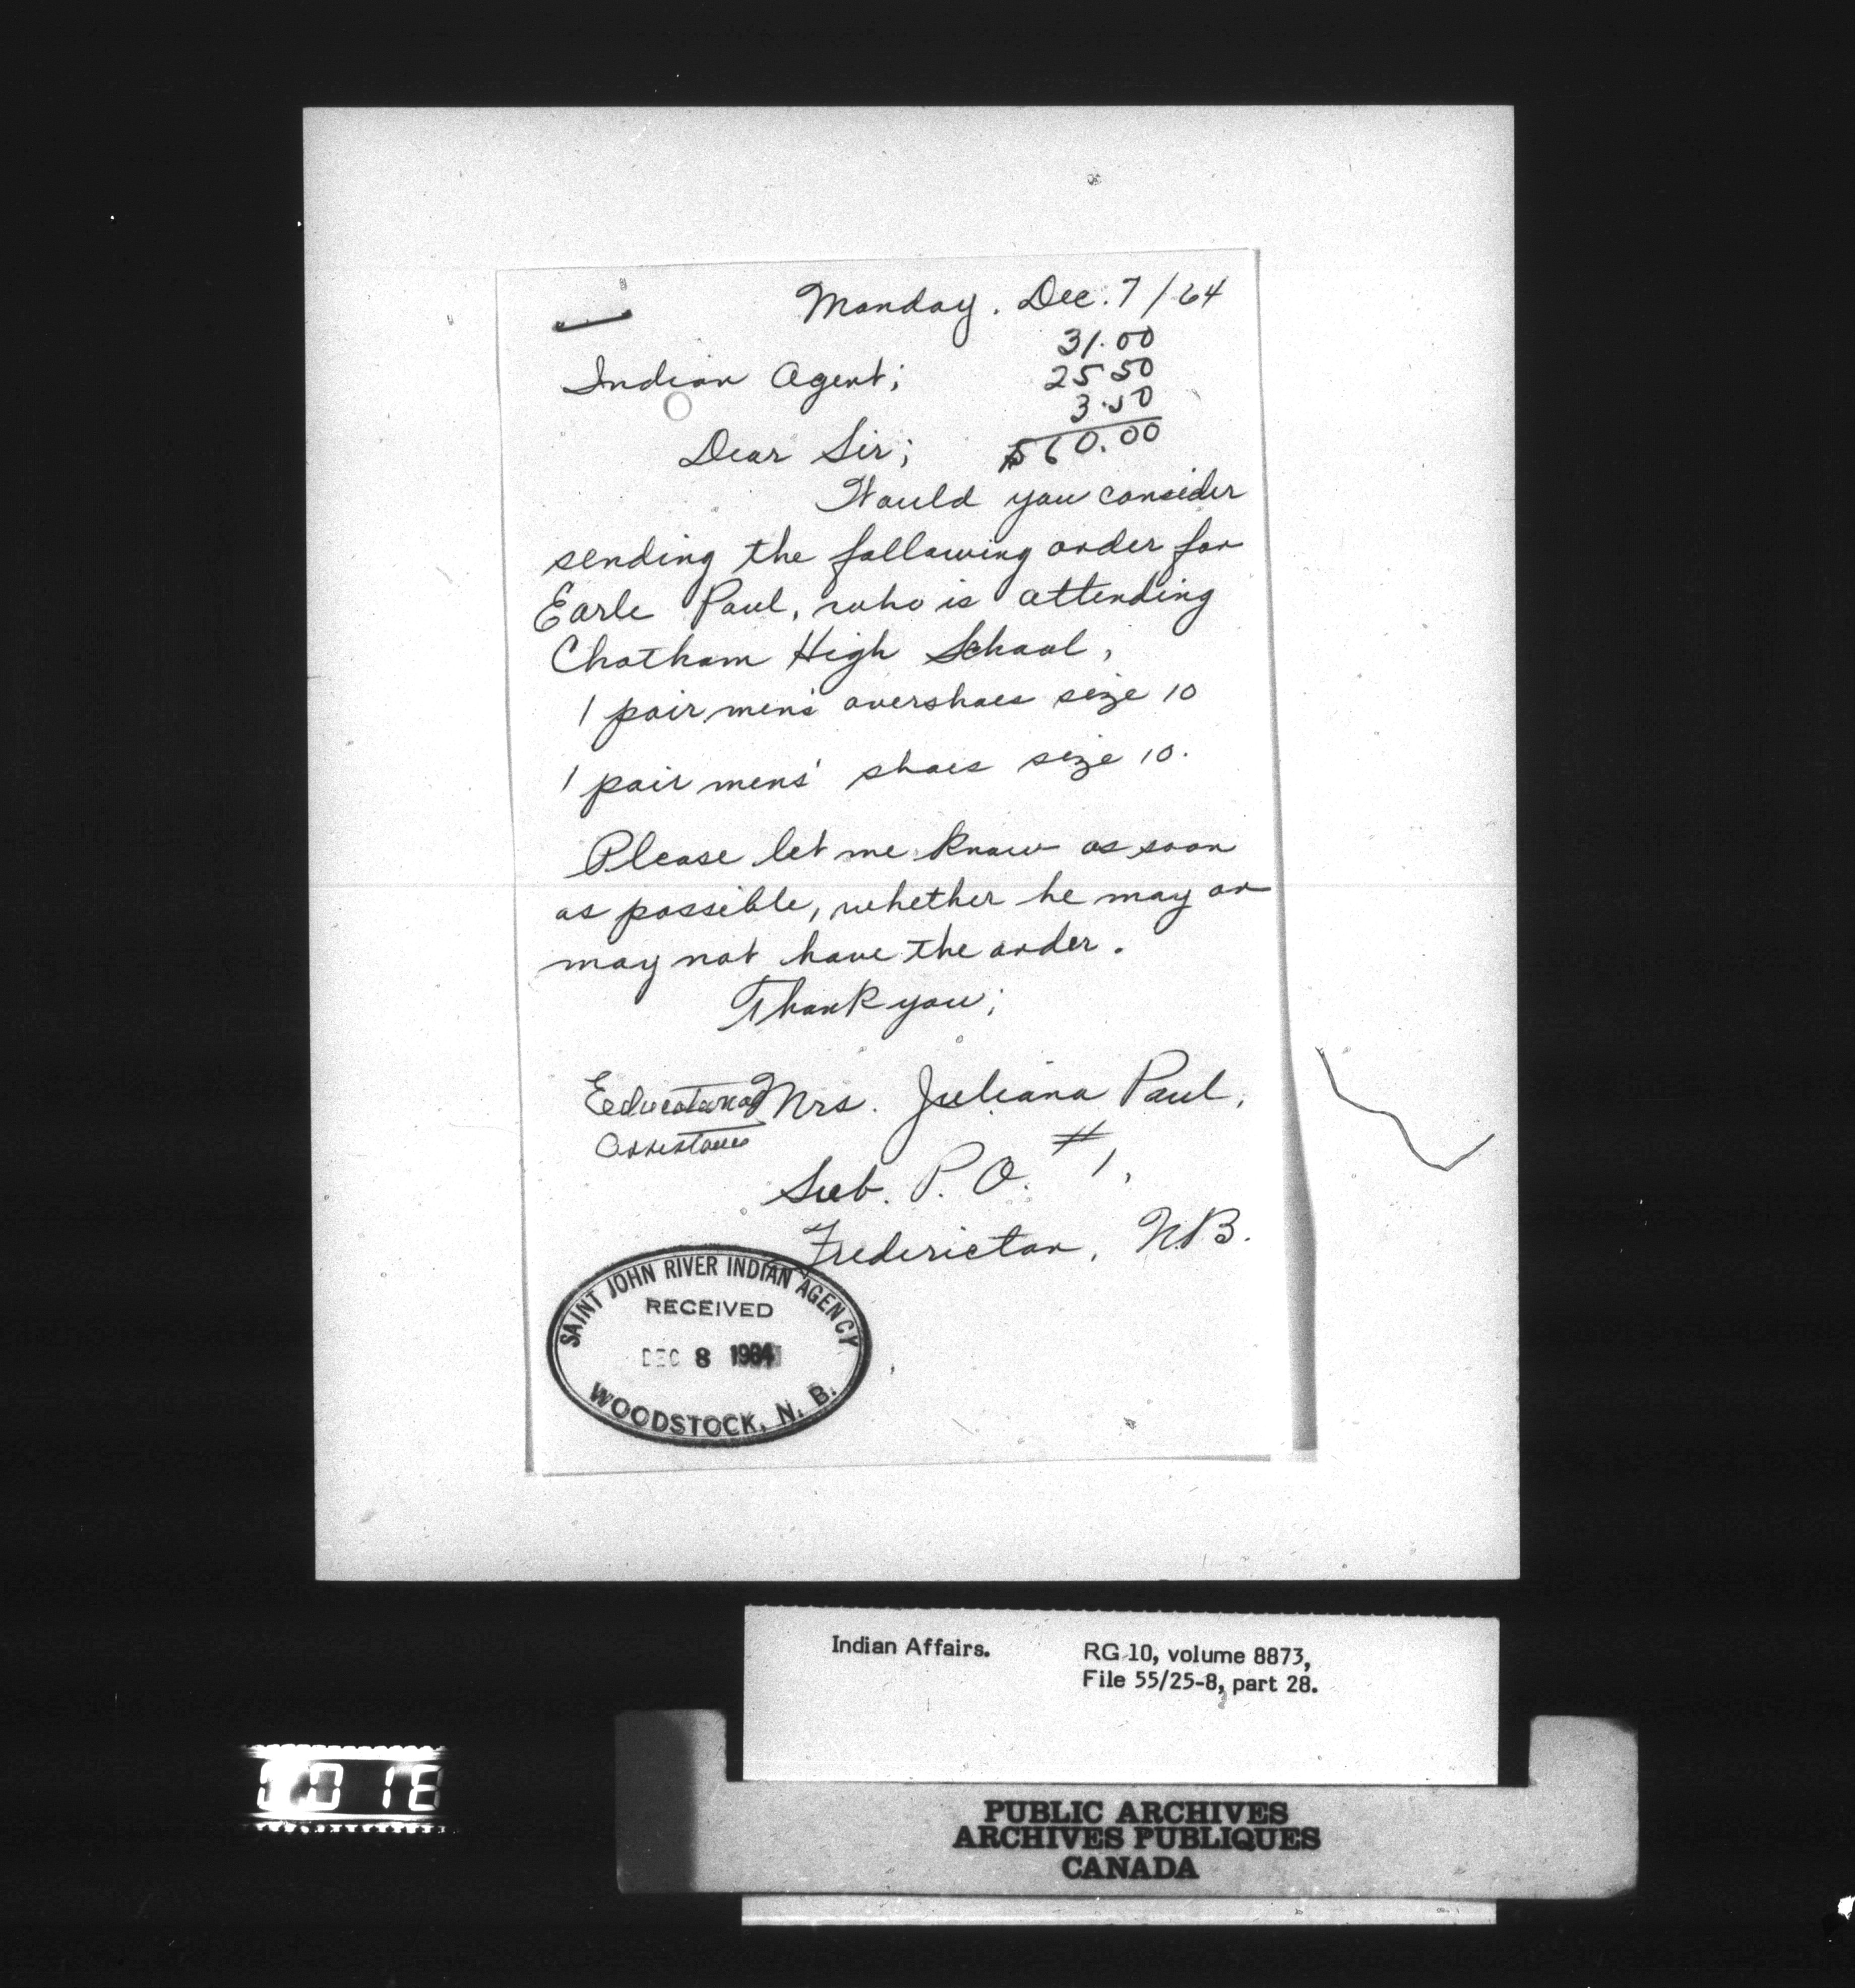 Monday. Dec. 7/64
31.00
Indian Agent;
25 50
3.50
Dear Sir;
$60.00
Would you consider
sending the following order for
Earle Paul, who is attending
Chatham High School,
1 pair mens' overshoes size 10
1 pair mens' shoes size 10.
Please let me know as soon
as possible, whether he may or
may not have the order.
Thank you;
Educational
Mrs. Juliana Paul,
Assistance
Sub. P.O. #1,
Fredericton, N.B.
SAINT JOHN RIVER INDIAN AGENCY
RECEIVED
DEC 8 1964
WOODSTOCK, N. B.
Indian Affairs.
RG 10, volume 8873,
File 55/25-8, part 28.
PUBLIC ARCHIVES
ARCHIVES PUBLIQUES
CANADA